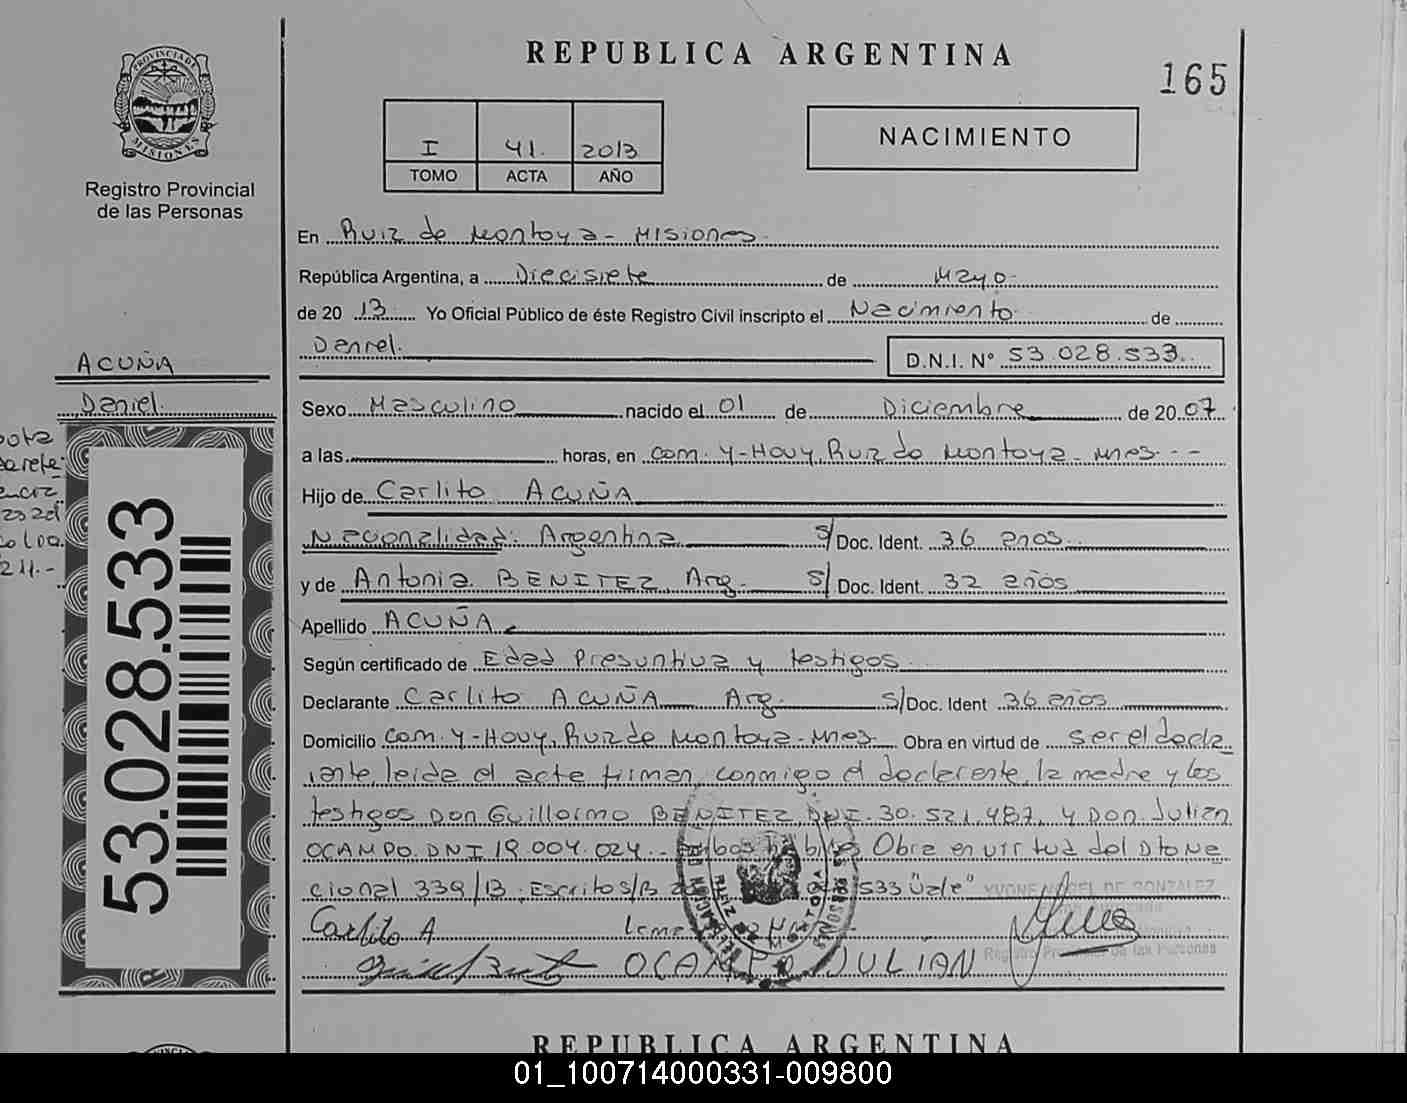 REPUBLICA ARGENTINA
165
PROVINCIA DE
MISIONES
Registro Provincial
de las Personas
I 41. 2013
TOMO ACTA AÑO
NACIMIENTO
En Ruiz de Montoya - Misiones.
República Argentina, a Diecisiete de Mayo
de 20 13 Yo Oficial Público de éste Registro Civil inscripto el Nacimiento de
Daniel. D.N.I. Nº 53.028.533
ACUÑA
Daniel.
Sexo Masculino nacido el 01 de Diciembre de 20 07
a las horas, en Com. Y-Hovy, Ruiz de Montoya - Mnes. - -
Hijo de Carlito ACUÑA
Nacionalidad: Argentina S/ Doc. Ident. 36 años
y de Antonia BENITEZ Arg. S/ Doc. Ident. 32 años
Apellido ACUÑA
Según certificado de Edad Presuntiva y testigos
Declarante Carlito ACUÑA Arg. S/Doc. Ident 36 años
Domicilio Com. Y-Hovy, Ruiz de Montoya - Mnes Obra en virtud de ser el decla
rante, leida el acta firman conmigo el declarante, la madre y los
testigos Don Guillermo BENITEZ DNI. 30.521.487 y Don Julian
OCAMPO DNI 19.004.024 - hábiles Obra en virtud del Dto Na
cional 339/13. Escrito S/B 533 "Vale"
YVONNE NOBEL DE GONZALEZ
Carlito A
OCAMPO JULIÁN
Registro Provincial de las Personas
53.028.533
REPUBLICA ARGENTINA
01_100714000331-009800